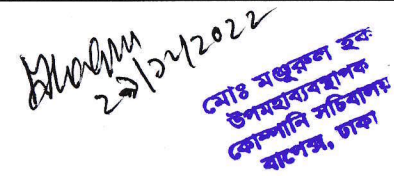 ২৯/১২/2022
মোঃ মঞ্জুরুল হক
উপমহাব্যবস্থাপক
কোম্পানি সচিবালয়
বাপেক্স, ঢাকা